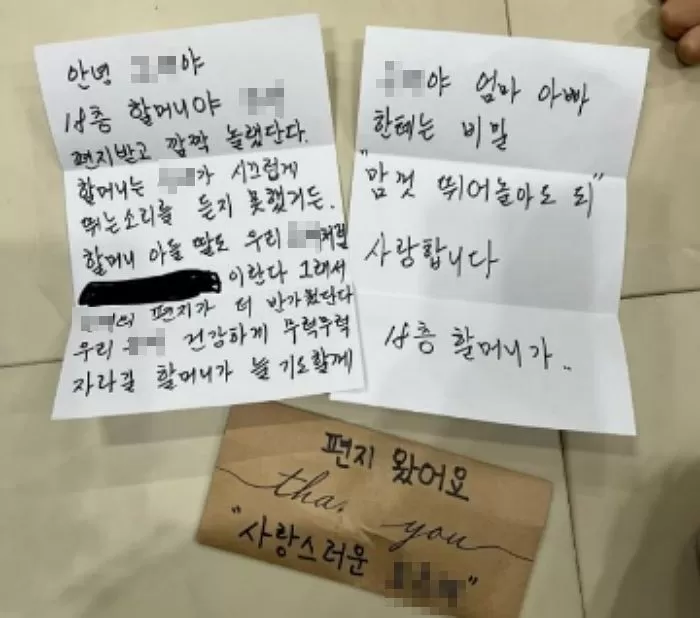 안녕 야
18층 할머니야
편지받고 깜짝 놀랬단다.
할머니는 가 시끄럽게
뛰는소리를 듣지 못했거든.
할머니 아들 딸도 우리 처럼
이란다 그래서
의 편지가 더 반가웠단다
우리 건강하게 무럭무럭
자라길 할머니가 늘 기도할께
야 엄마 아빠
한테는 비밀
"맘껏 뛰어놀아도 되"
사랑합니다
18층 할머니가..
편지 왔어요
thank you
"사랑스러운 "